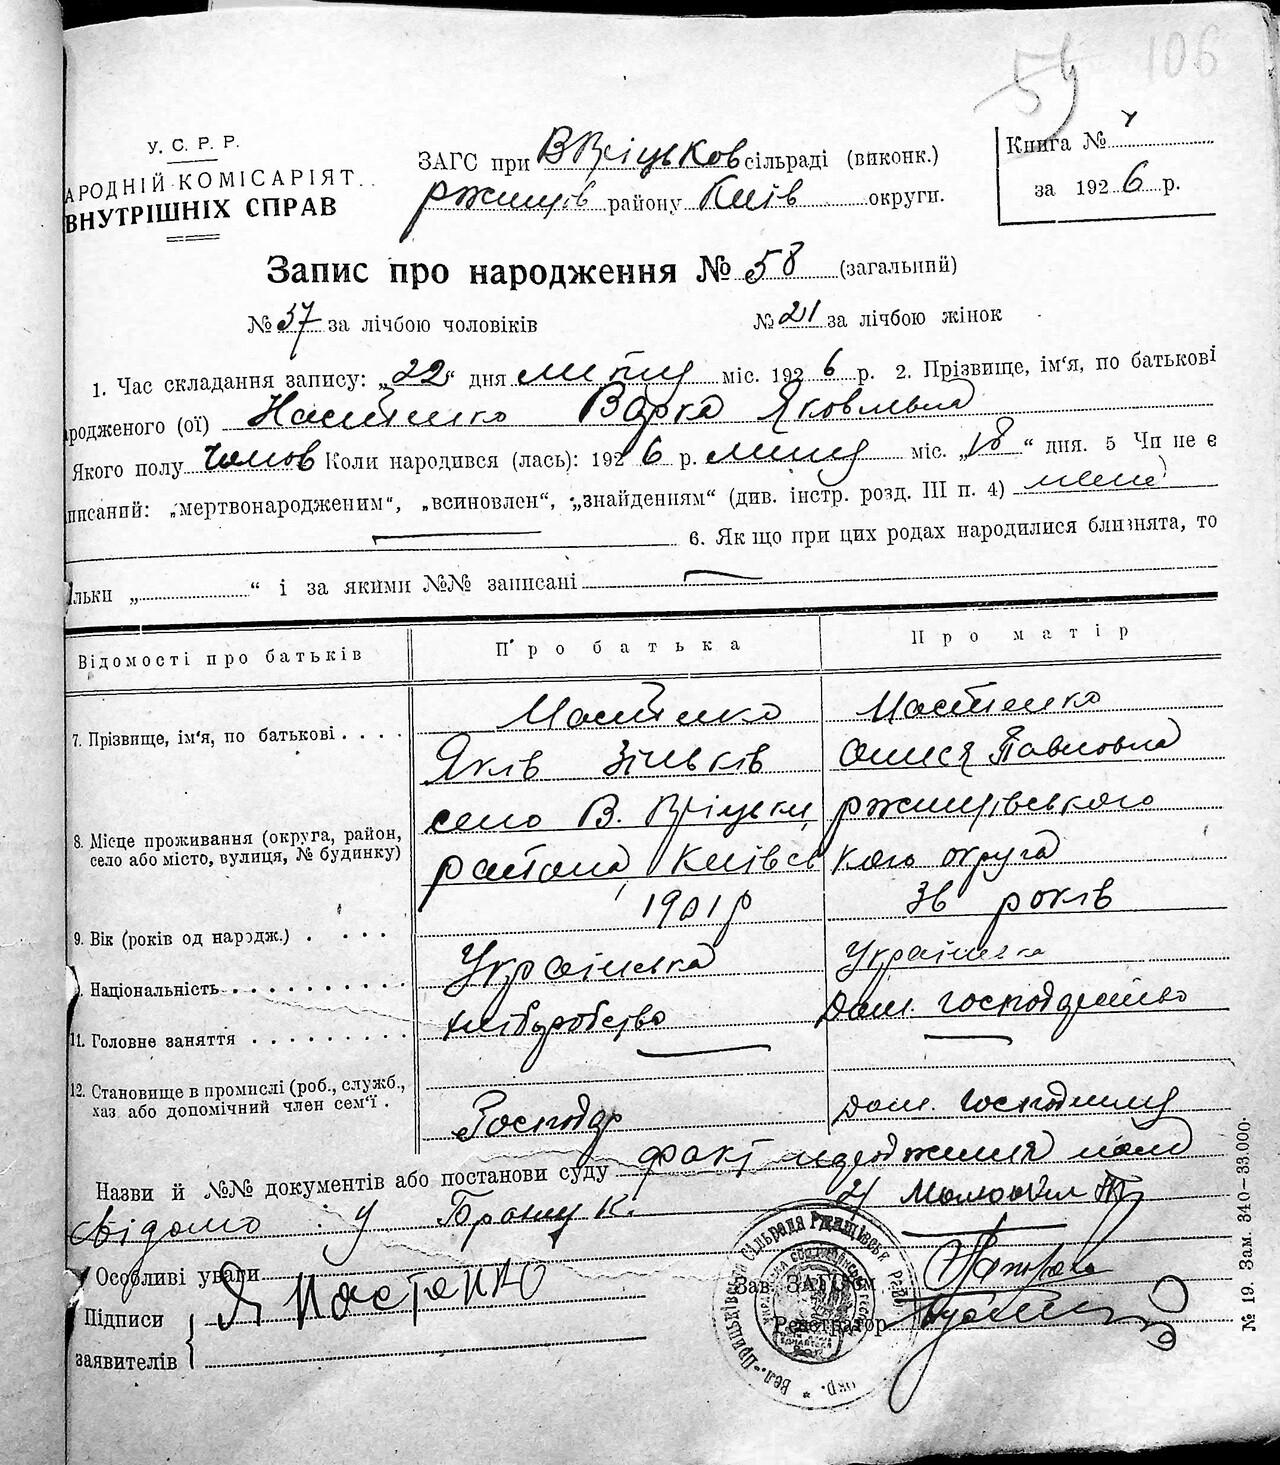 54 106
У. С. Р. Р.
АРОДНІЙ КОМІСАРІЯТ
ВНУТРІШНІХ СПРАВ
ЗАГС при В Пріцьков сільраді (виконк.)
Ржищів району Київ округи.
Книга №
за 1926 р.
Запис про народження № 58 (загальний)
№ 37 за лічбою чоловіків № 21 за лічбою жінок
1. Час складання запису: „22“ дня липня міс. 1926 р. 2. Прізвище, ім‘я, по батькові
родженого (ої) Настенко Варка Яковлевна
Якого полу Коли народився (лась): 1926 р. липня міс. „18“ дня. 5 Чи не є
писаний: „мертвонародженим“, „всиновлен“, „знайденням“ (див. інстр. розд. III п. 4)
6. Як що при цих родах народилися близнята, то
ільки „ “ і за якими №№ записані
Відомості про батьків Про батька Про матір
7. Прізвище, ім‘я, по батькові Настенко Настенко
Яків Зіньків Павловна
8. Місце проживання (округа, район, село В. Пріцьки, ржищівського
село або місто, вулиця, № будинку) району Київсь кого округа
9. Вік (років од нородж.) 1901 р 36 років
Національність Українська Українська
11. Головне заняття хліборобство Дом. господарство
12. Становище в промислі (роб., служб.,
хаз. або допомічний член сем‘ї. Господар дом. господиня
Назви й №№ документів або постанови суду факт народження
свідомо у
Особливі уваги
Підписи Я Настенко
заявителів
Зав. ЗАГС‘ом
Реєстратор
Вел.-Прицьківська Сільрада Ржищівськ. Рай. окр.
№ 19. Зам. 340—33.000.